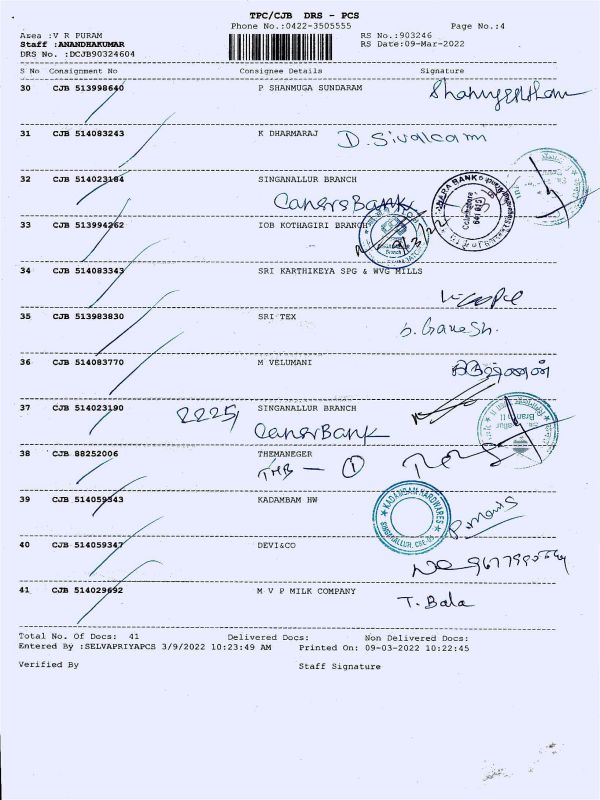 TPC/CJB DRS - PCS
Phone No.:0422-3505555 Page No.:4
Area :V R PURAM RS No.:903246
Staff :ANANDHAKUMAR RS Date:09-Mar-2022
DRS No. :DCJB90324604
S No Consignment No Consignee Details Signature
30 CJB 513998640 P SHANMUGA SUNDARAM
31 CJB 514083243 K DHARMARAJ D. Sivalcami
32 CJB 514023184 SINGANALLUR BRANCH
Canera Bank
33 CJB 513994262 IOB KOTHAGIRI BRANCH
34 CJB 514083343 SRI KARTHIKEYA SPG & WVG MILLS
35 CJB 513983830 SRI TEX
b. Ganesh.
36 CJB 514083770 M VELUMANI
37 CJB 514023190 2225 SINGANALLUR BRANCH
Caner Bank
38 CJB 88252006 THEMANEGER
THB - 1
39 CJB 514059343 KADAMBAM HW
KADAMBAM HARDWARES
SINGANALLUR, CBE-05
40 CJB 514059347 DEVI&CO
41 CJB 514029692 M V P MILK COMPANY
T. Bala
Total No. Of Docs: 41 Delivered Docs: Non Delivered Docs:
Entered By :SELVAPRIYAPCS 3/9/2022 10:23:49 AM Printed On: 09-03-2022 10:22:45
Verified By Staff Signature